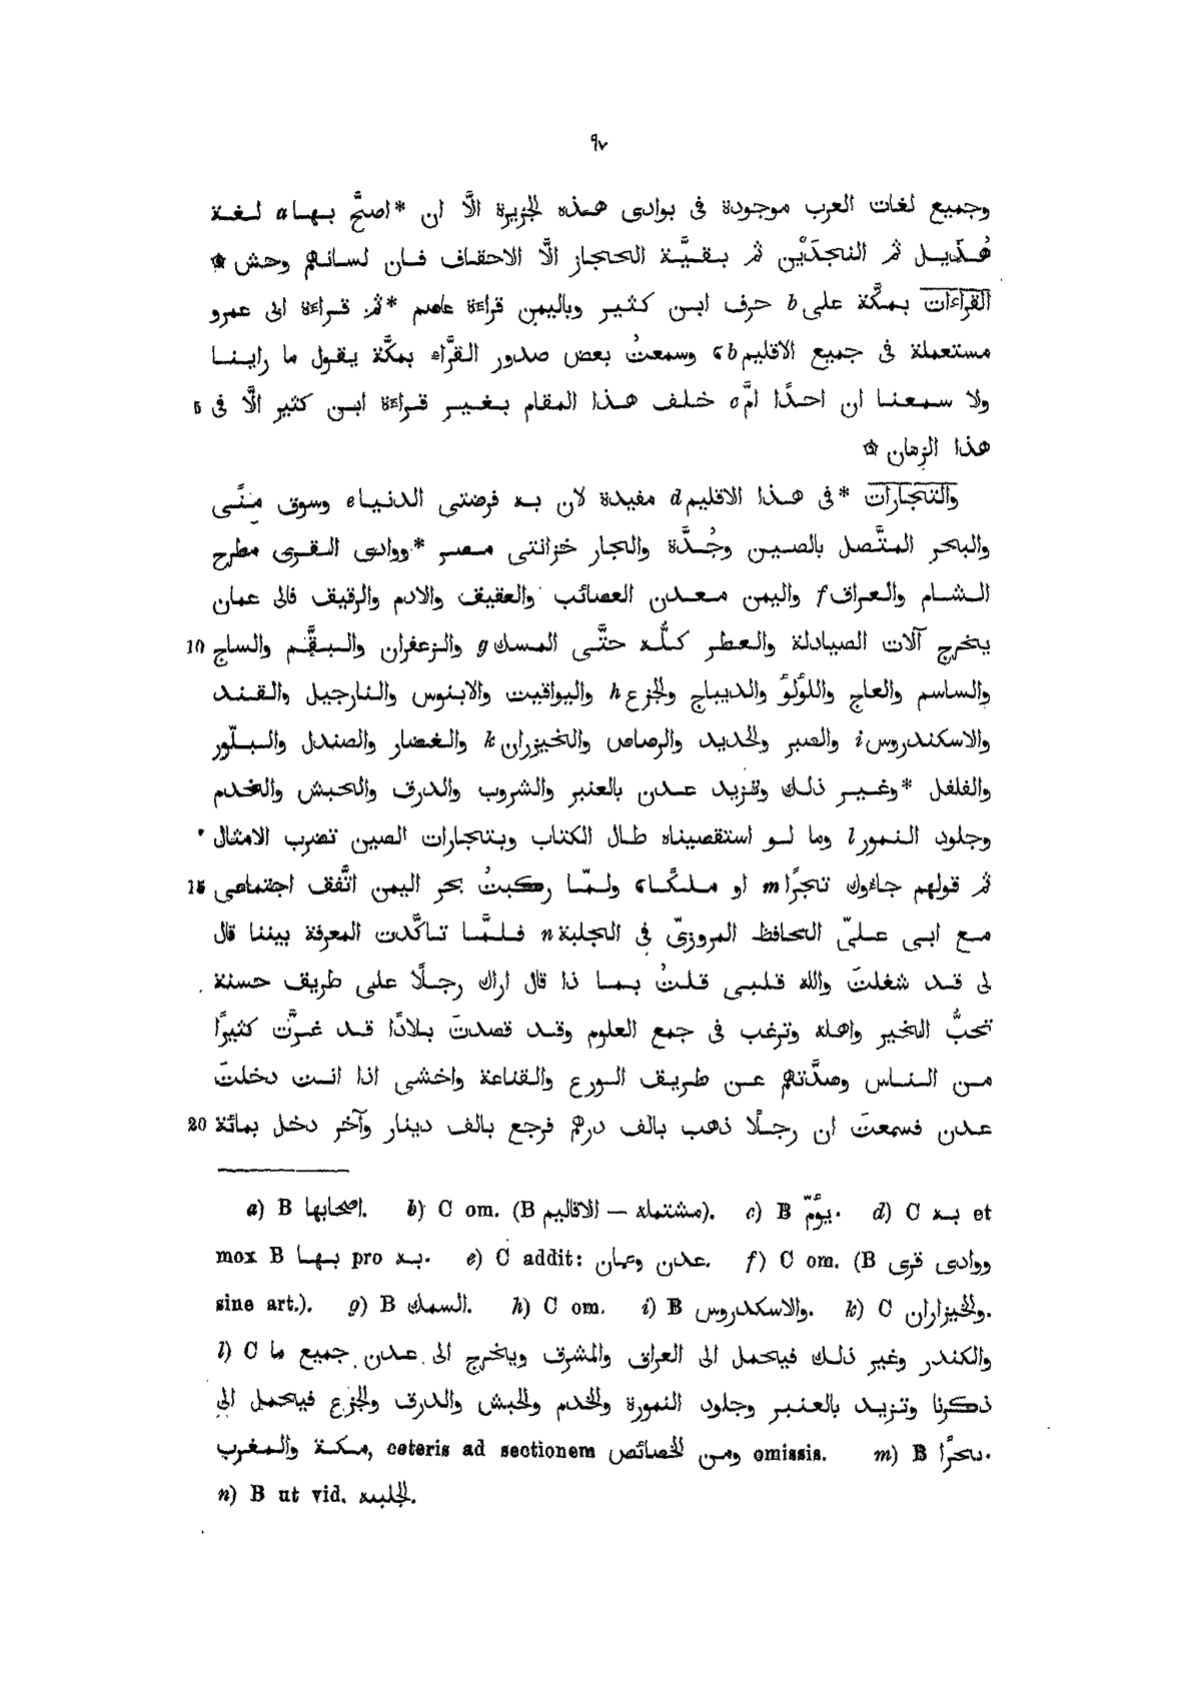 ٩٧
وجميع لغات العرب موجودة فى بوادى هذه الجزيرة الَّا ان *اصحَّ بها a لغة
هُذَيل ثم النجدَيْن ثم بقيَّة الحجاز الَّا الاحقاف فان لسانهم وحش ۞
القراءات بمكَّة على b حرف ابن كثير وباليمن قراءة عاصم *ثم قراءة ابى عمرو
مستعملة فى جميع الاقليم b ۞ وسمعتُ بعض صدور القرَّاء بمكَّة يقول ما راينا
ولا سمعنا ان احدًا امَّ c خلف هذا المقام بغير قراءة ابن كثير الَّا فى 5
هذا الزمان ۞
والتجارات *فى هذا الاقليم d مفيدة لان به فرضتى الدنيا e وسوق مِنَّى
والبحر المتَّصل بالصين وجُدَّة والجار خزانتى مصر *ووادى القرى مطرح
الشام والعراق f واليمن معدن العصائب والعقيق والادم والرقيق فالى عمان
يخرج آلات الصيادلة والعطر كلُّه حتَّى المسك g والزعفران والبقَّم والساج 10
والساسم والعاج واللؤلؤ والديباج والجزع h واليواقيت والابنوس والنارجيل والقند
والاسكندروس i والصبر والحديد والرصاص والخيزران k والغضار والصندل والبلّور
والفلفل *وغير ذلك وتزيد عدن بالعنبر والشروب والدرق والحبش والخدم
وجلود النمور l وما لو استقصيناه طال الكتاب وبتجارات الصين تضرب الامثال
ثم قولهم جاءوك تجرًا m او ملكًا ۞ ولمّا ركبتُ بحر اليمن اتَّفق اجتماعى 15
مع ابى علىّ الحافظ المروزىّ فى الجلبة n فلمَّا تاكَّدت المعرفة بيننا قال
لى قد شغلتَ والله قلبى قلتُ بما ذا قال اراك رجلًا على طريق حسنة
تحبُّ الخير واهله وترغب فى جمع العلوم وقد قصدتَ بلادًا قد غرَّت كثيرًا
من الناس وصدَّتهم عن طريق الورع والقناعة واخشى اذا انت دخلتَ
عدن فسمعتَ ان رجلًا ذهب بالف درهم فرجع بالف دينار وآخر دخل بمائة 20
a) B اصحابها. b) C om. (B مشتمله — الاقاليم). c) B يؤمّ. d) C به et
mox B بها pro به. e) C addit: عدن وعمان. f) C om. (B ووادى قرى
sine art.). g) B السمك. h) C om. i) B والاسكدروس. k) C والخيزاران.
l) C والكندر وغير ذلك فيحمل الى العراق والمشرق ويخرج الى عدن جميع ما
ذكرنا وتزيد بالعنبر وجلود النمورة والخدم والحبش والدرق والجزع فيحمل الى
مكة والمغرب, ceteris ad sectionem ومن الخصائص omissis. m) B بحرًا.
n) B ut vid. الجلبيه.